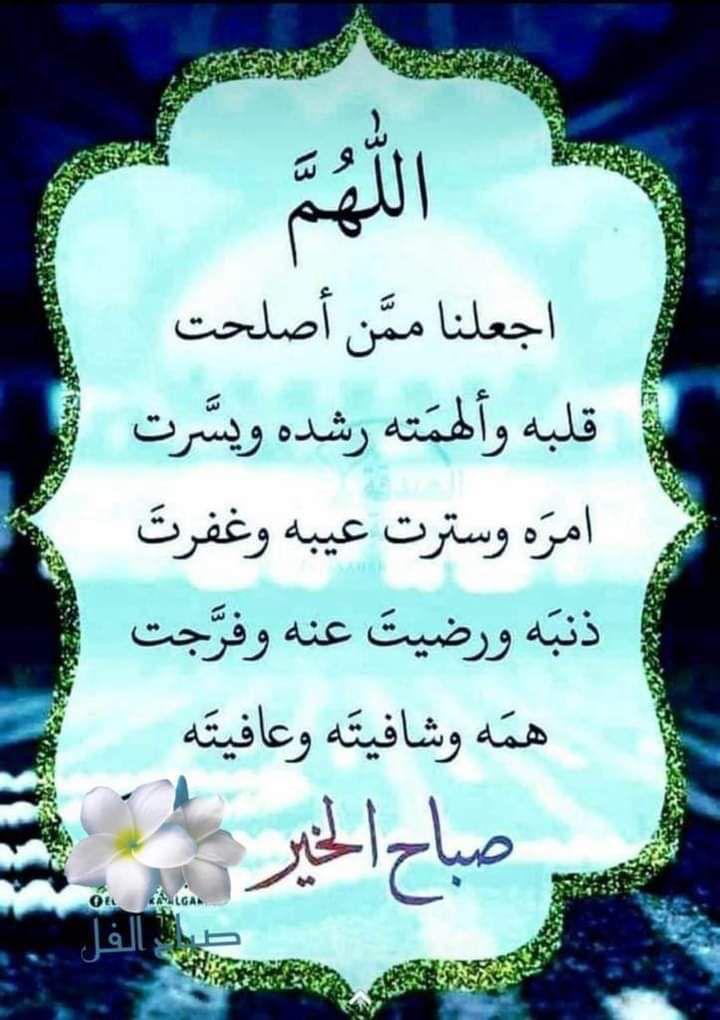 اللّٰهُمَّ
اجعلنا ممَّن أصلحت
قلبه وألهمَته رشده ويسَّرت
امرَه وسترت عيبه وغفرتَ
ذنبَه ورضيتَ عنه وفرَّجت
همَه وشافيتَه وعافيتَه
صباح الخير
صباح الفل